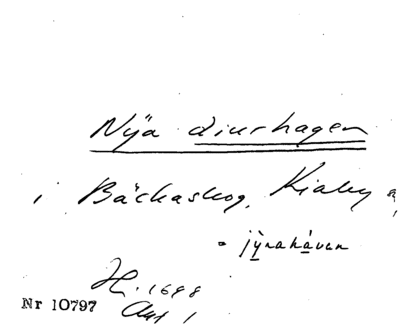 Nÿa diurhagen
i Bäckaskog, Kiaby s,
- jỳnahàven
H. 1698
Nr 10797